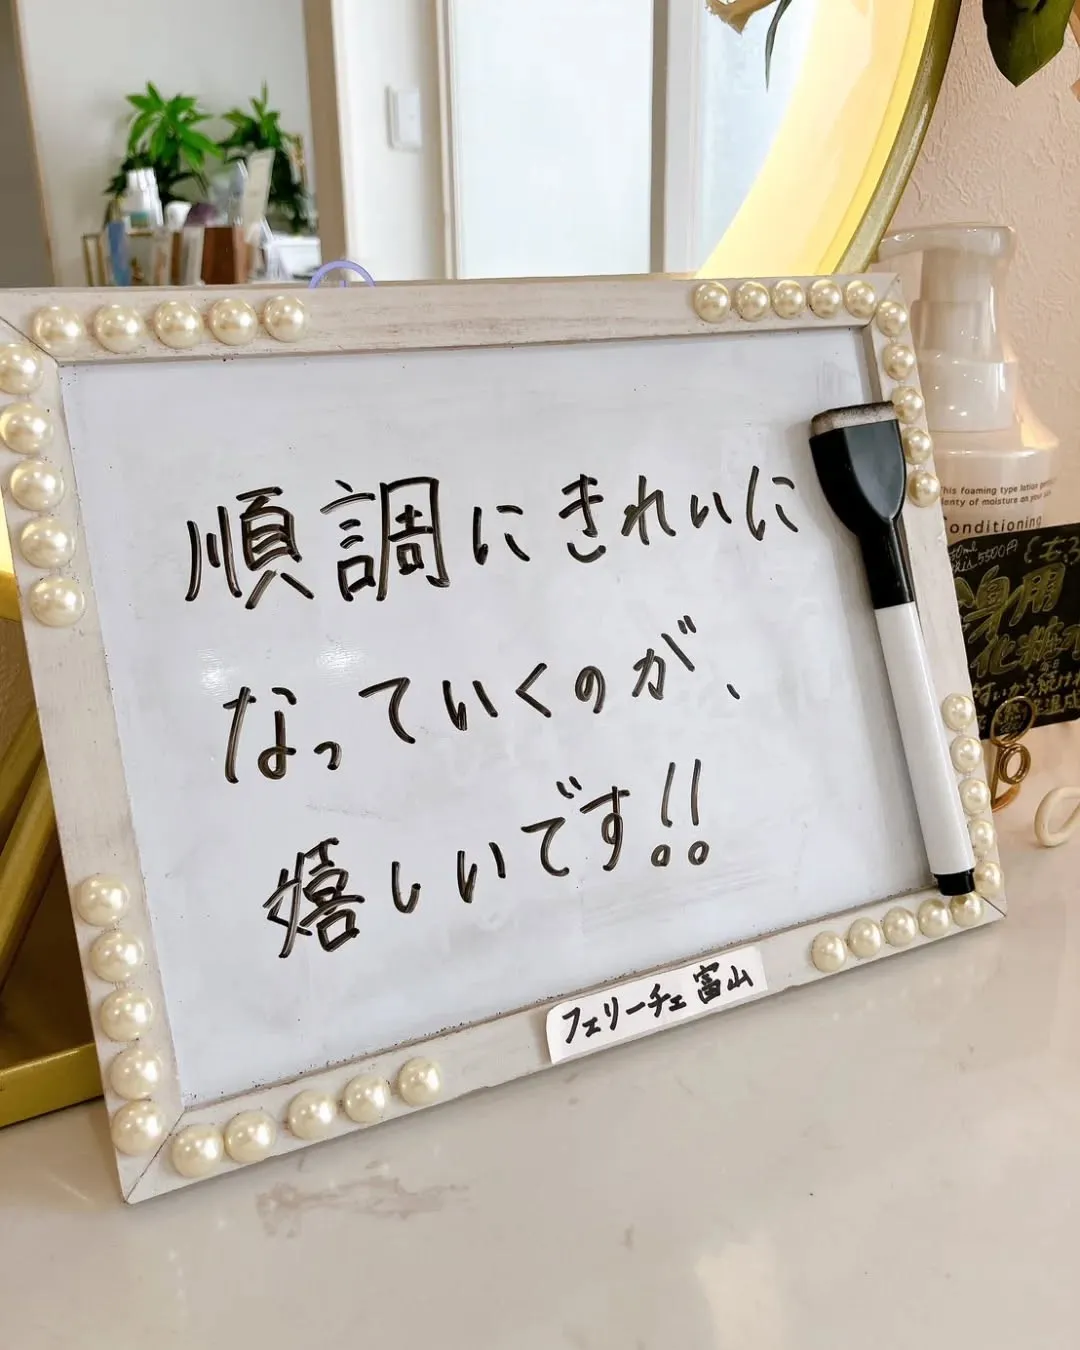 順調にきれいに
なっていくのが、
嬉しいです!!
フェリーチェ富山
This foaming type lotion
plenty of moisture on your
Conditioning
5500円
身用